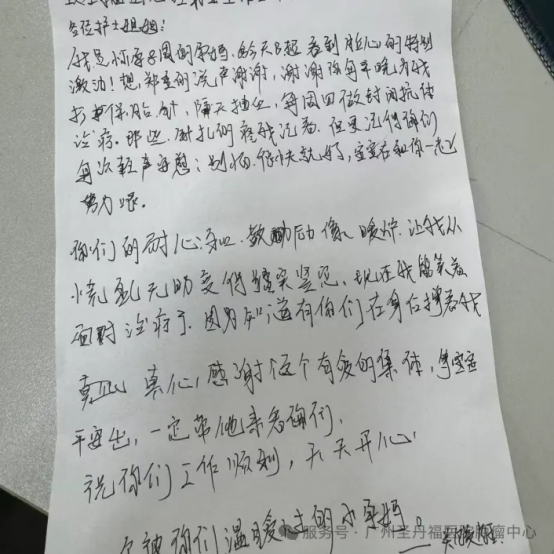 各位护士姐姐:
我是怀孕8周的孕妈.今天B超看到胎心的特别
激动!想郑重的说声谢谢,谢谢你每早晚为我
打两保胎针,隔天抽血,每周四做封闭抗体
治疗。那些 针扎的疼我记着.但更记得你们
每次轻声安慰:别怕.很快就好了,宝宝在和你一起
努力呢。
你们的耐心和 鼓励 像 暖炉.让我从
慌乱无助变得踏实坚定.现在我能笑着
面对治疗了.因为知道有你们在身后撑着我
真心 感谢这个有爱的集体,等宝宝
平安出,一定带他来看你们.
祝你们工作顺利,天天开心
被你们温暖 的小孕妈。
服务号·广州圣丹福医 瘤中心